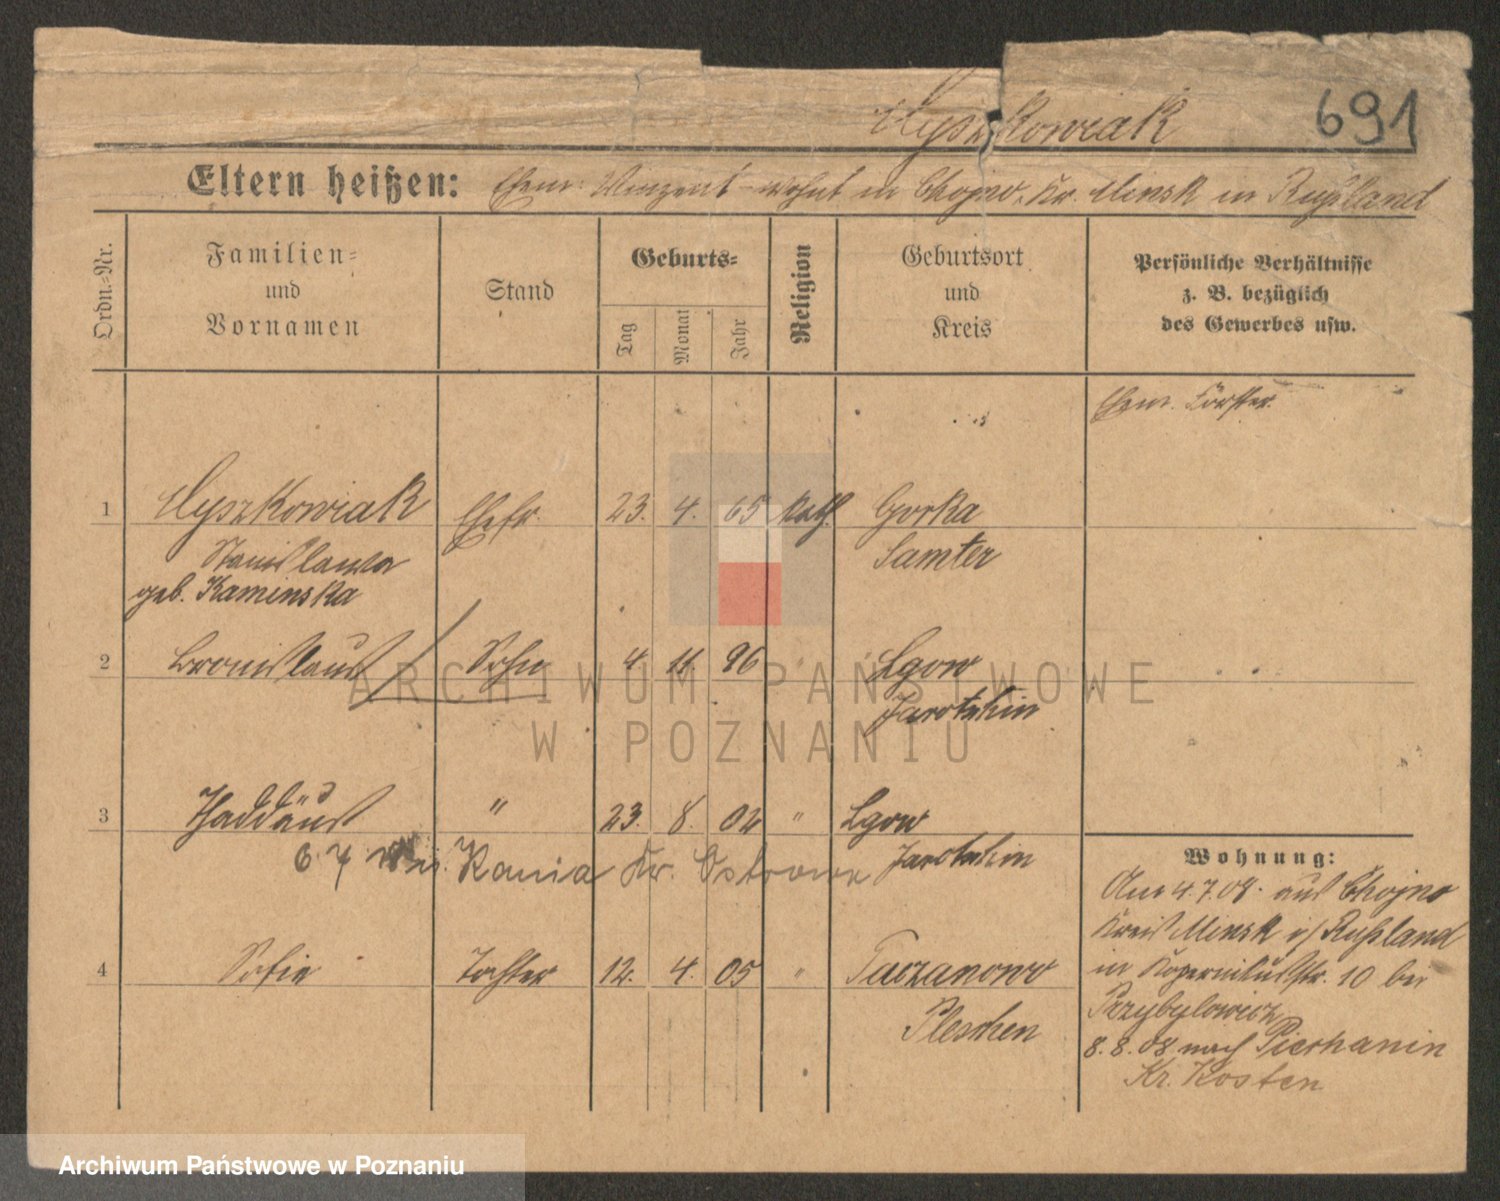 Myszkowiak 691
Eltern heißen: Ehem. Vinzent wohnt in Chojno, Kr. Minsk in Rußland
Ordn.=Nr.
Familien=
und
Vornamen
Stand
Geburts=
Tag
Monat
Jahr
Religion
Geburtsort
und
Kreis
Persönliche Verhältnisse
z. B. bezüglich
des Gewerbes usw.
Ehem. Förster
1 Myszkowiak Ehefr. 23. 4. 65 kath. Gorka
Stanislawa Samter
geb. Kaminska
2 Bronislaus Sohn 4 11 96 " Lgow
Jarotschin
3 Thaddäus " 23. 8. 02 " Lgow
Jarotschin
6 7 Kania Kr. Ostrowo
4 Sofie Tochter 12. 4. 05 " Taczanowo
Pleschen
Wohnung:
Am 4.7.08. aus Chojno
Kreis Minsk i/ Rußland
in Kopernikusstr. 10 bei
Przybylowicz
8.8.08 nach Pierhanin
Kr. Kosten
ARCHIWUM PAŃSTWOWE
W POZNANIU
Archiwum Państwowe w Poznaniu